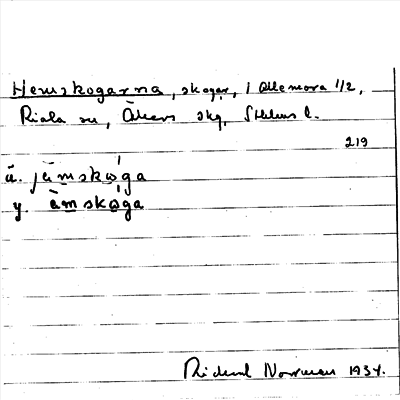 Hemskogarna, skogar, i Allemora 1/2,
Riala sn, Åkers skg, Sthlms l.
219
ä. jä̀mskὼga
y. ä̀mskὼga
Rickard Norrman 1934.